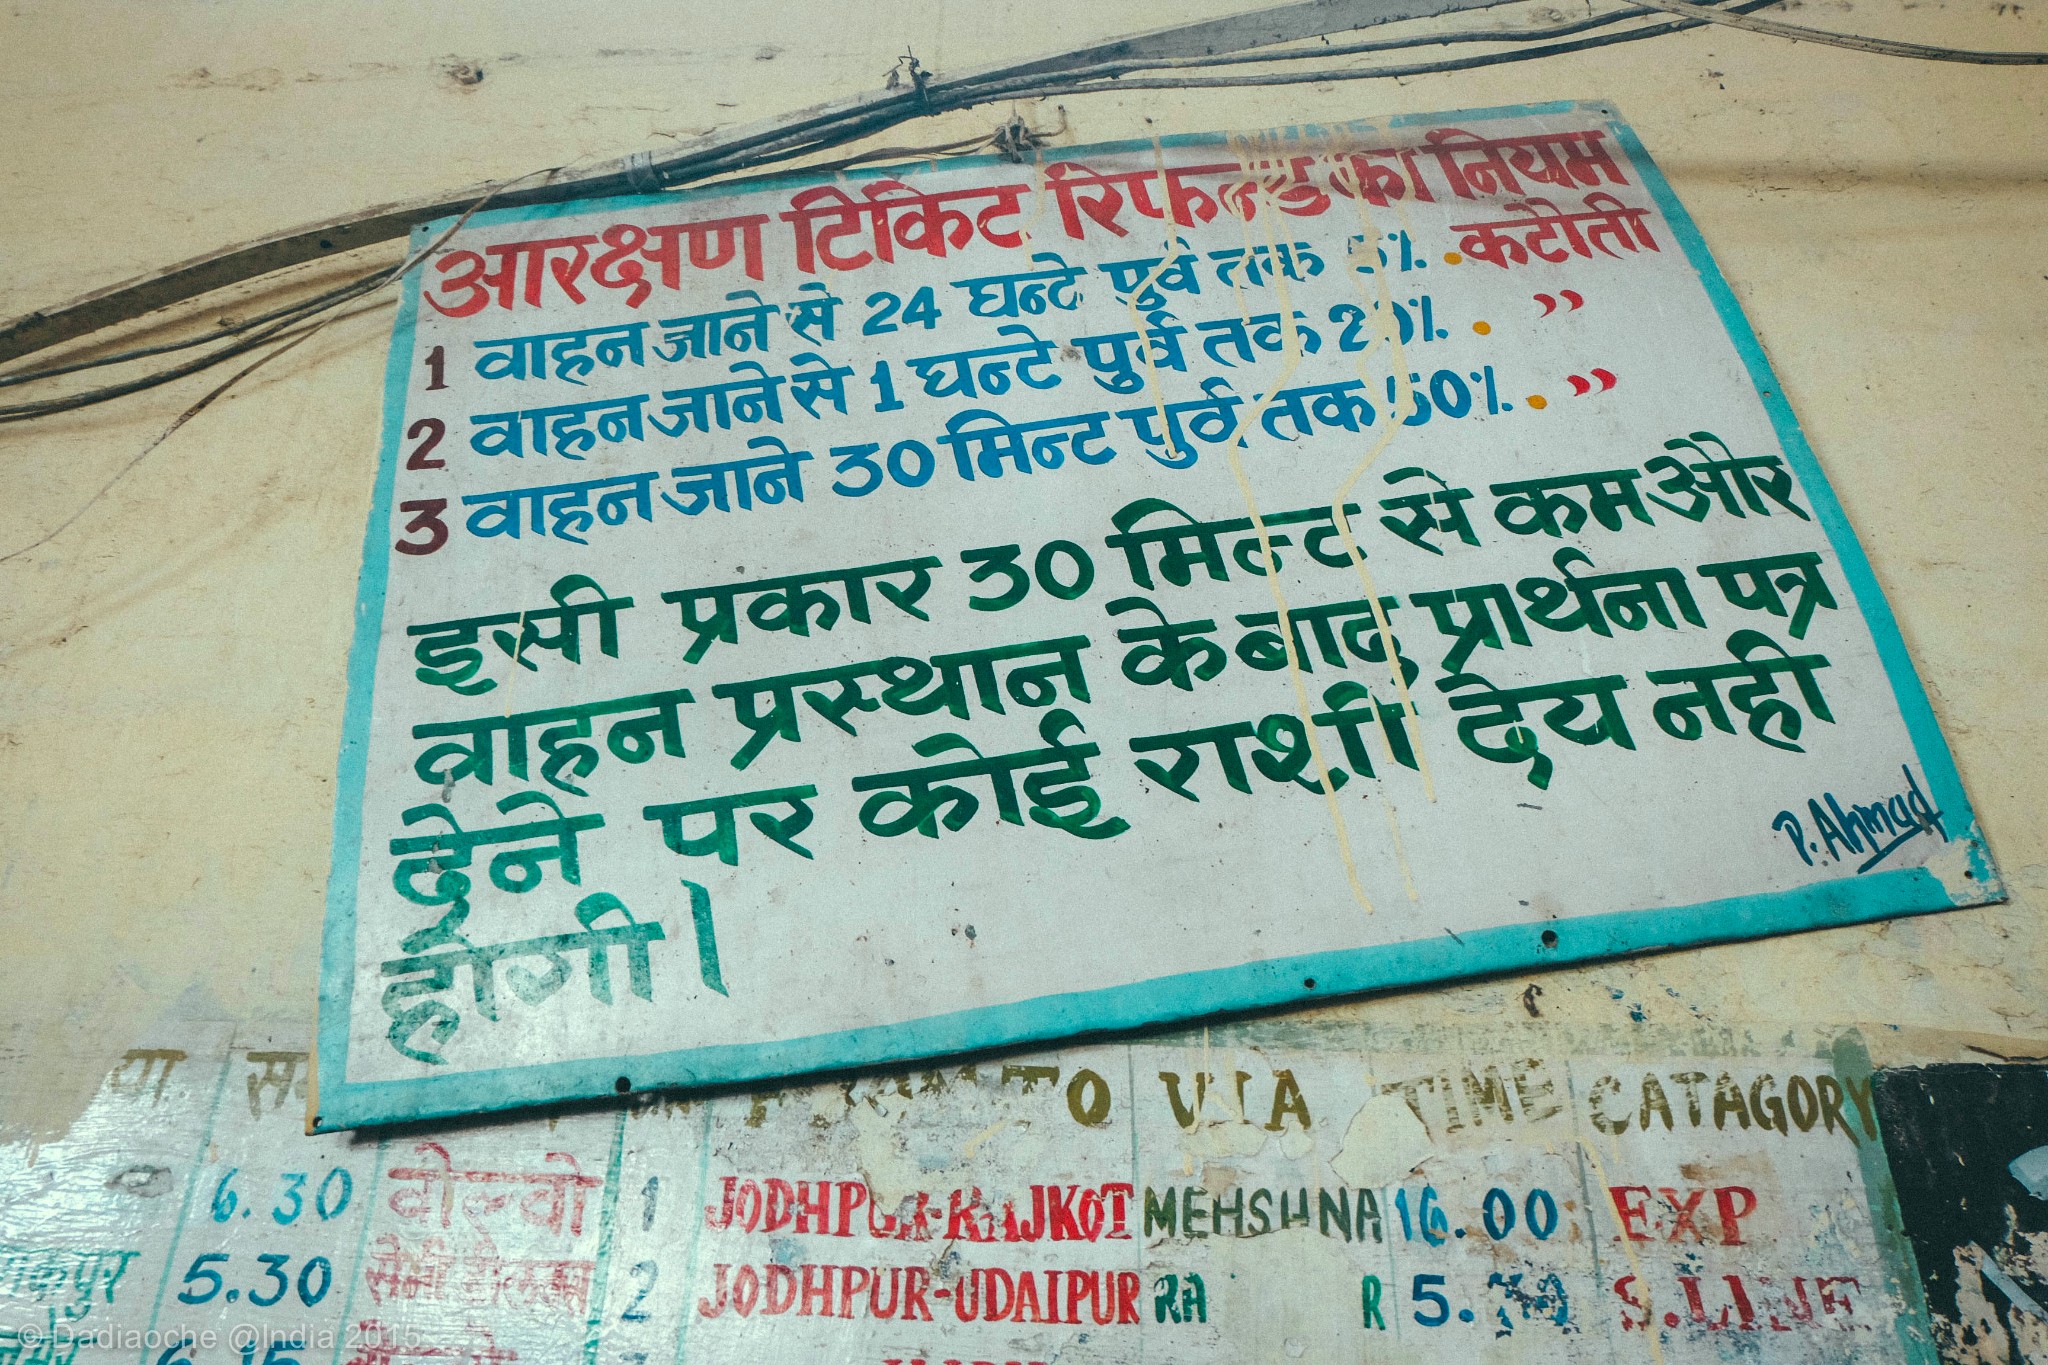 आरक्षण टिकिट रिफन्ड का नियम
1 वाहन जाने से 24 घन्टे पुर्व तक 5% . कटौती
2 वाहन जाने से 1 घन्टे पुर्व तक 20% . ”
3 वाहन जाने 30 मिन्ट पुर्व तक 50% . ”
इसी प्रकार 30 मिन्ट से कम और
वाहन प्रस्थान के बाद प्रार्थना पत्र
देने पर कोई राशी देय नही
होगी।
P. Ahmad
TO VIA TIME CATAGORY
6.30 वोल्वो 1 JODHPUR-RAJKOT MEHSHNA 16.00 EXP
5.30 2 JODHPUR-UDAIPUR RA R S.LINE
© Dadiaoche @India 2015